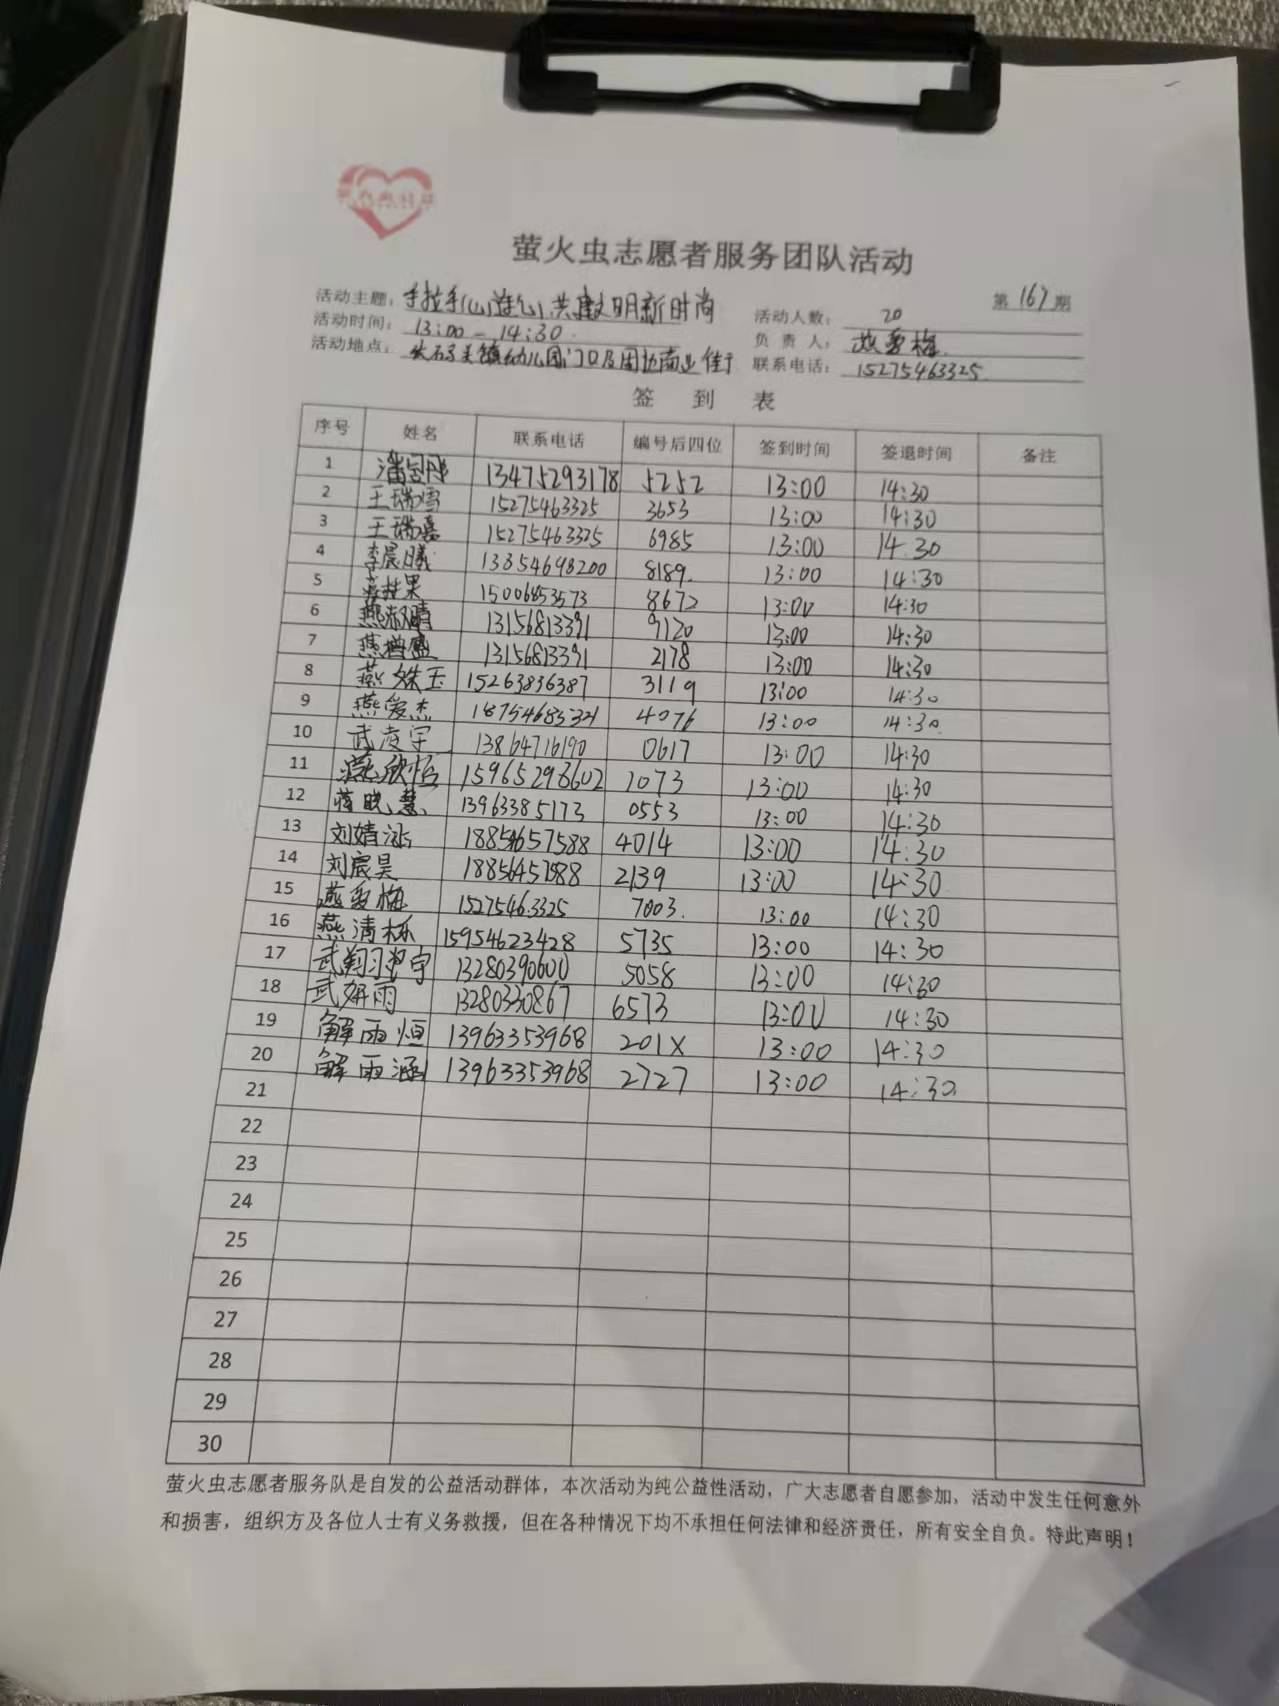 萤火虫志愿者服务团队活动
第 167 期
活动主题: 手拉手心连心 共建文明新时尚
活动人数: 20
活动时间: 13:00 - 14:30
负责人: 燕爱梅
活动地点: 镇幼儿园门口及周边商业街
联系电话: 15275463325
签 到 表
序号 姓名 联系电话 编号后四位 签到时间 签退时间 备注
1 潘 13475293178 5252 13:00 14:30
2 王瑞雪 15275463325 3653 13:00 14:30
3 王瑞嘉 15275463325 6985 13:00 14:30
4 李晨曦 13854698200 8189 13:00 14:30
5 15006853573 8672 13:00 14:30
6 燕淑晴 13156813391 9120 13:00 14:30
7 燕增盛 13156813391 2178 13:00 14:30
8 燕姝玉 15263836387 3119 13:00 14:30
9 燕爱杰 18754685321 4076 13:00 14:30
10 武凌宇 13864716190 0617 13:00 14:30
11 欣怡 15965298602 1073 13:00 14:30
12 蒋晓慧 13963385173 0553 13:00 14:30
13 刘婧涵 18854657588 4014 13:00 14:30
14 刘宸昊 2139 13:00 14:30
15 燕爱梅 15275463325 7003 13:00 14:30
16 燕清栎 15954623428 5735 13:00 14:30
17 武翔宇 13280390600 5058 13:00 14:30
18 武妍雨 13280330867 6573 13:00 14:30
19 解雨恒 13963353968 201X 13:00 14:30
20 解雨涵 13963353968 2727 13:00 14:30
21
22
23
24
25
26
27
28
29
30
萤火虫志愿者服务队是自发的公益活动群体，本次活动为纯公益性活动，广大志愿者自愿参加，活动中发生任何意外
和损害，组织方及各位人士有义务救援，但在各种情况下均不承担任何法律和经济责任，所有安全自负。特此声明！